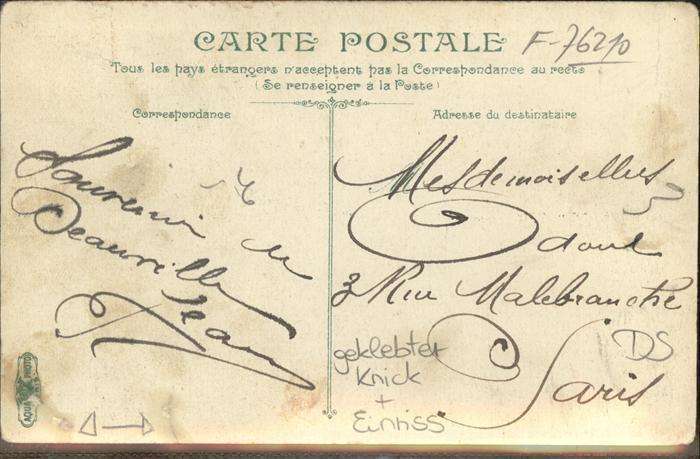 CARTE POSTALE
F-76210
Tous les pays étrangers n'acceptent pas la Correspondance au recto
(Se renseigner à la Poste)
Correspondance
Adresse du destinataire
Souvenir de
Deauville
Jean
Mesdemoiselles
3 Rue Malebranche
Paris
geklebter
Knick
+
Einriss
DS
AQUA PHOTO